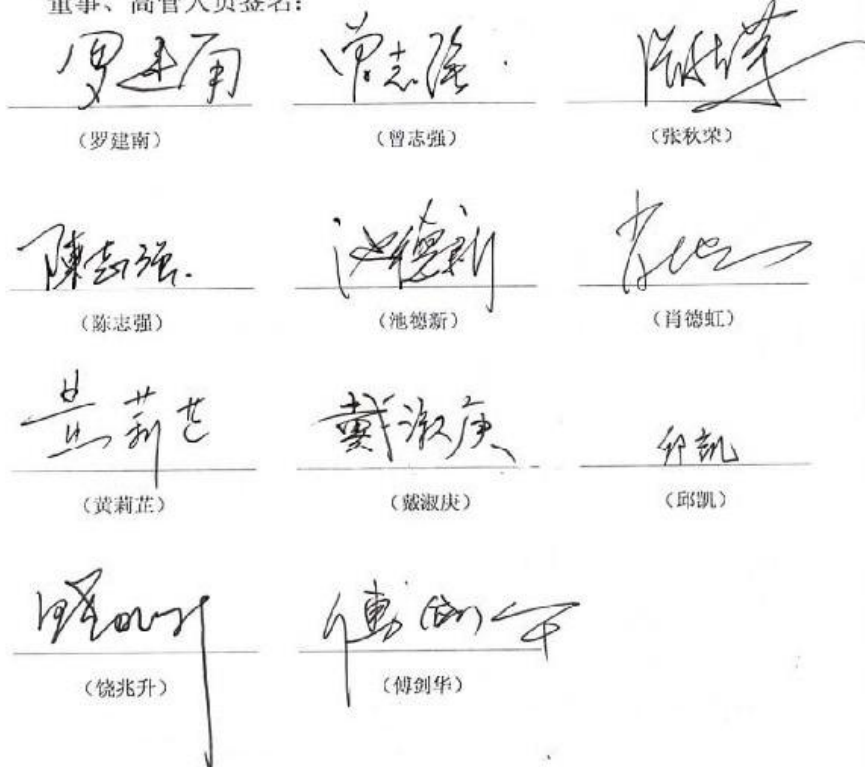 董事、高管人员签名：
罗建南 曾志强 张秋荣
（罗建南） （曾志强） （张秋荣）
陳志强 池德新 肖德虹
（陈志强） （池德新） （肖德虹）
黄莉芷 戴淑庚 邱凯
（黄莉芷） （戴淑庚） （邱凯）
（饶兆升） （傅剑华）